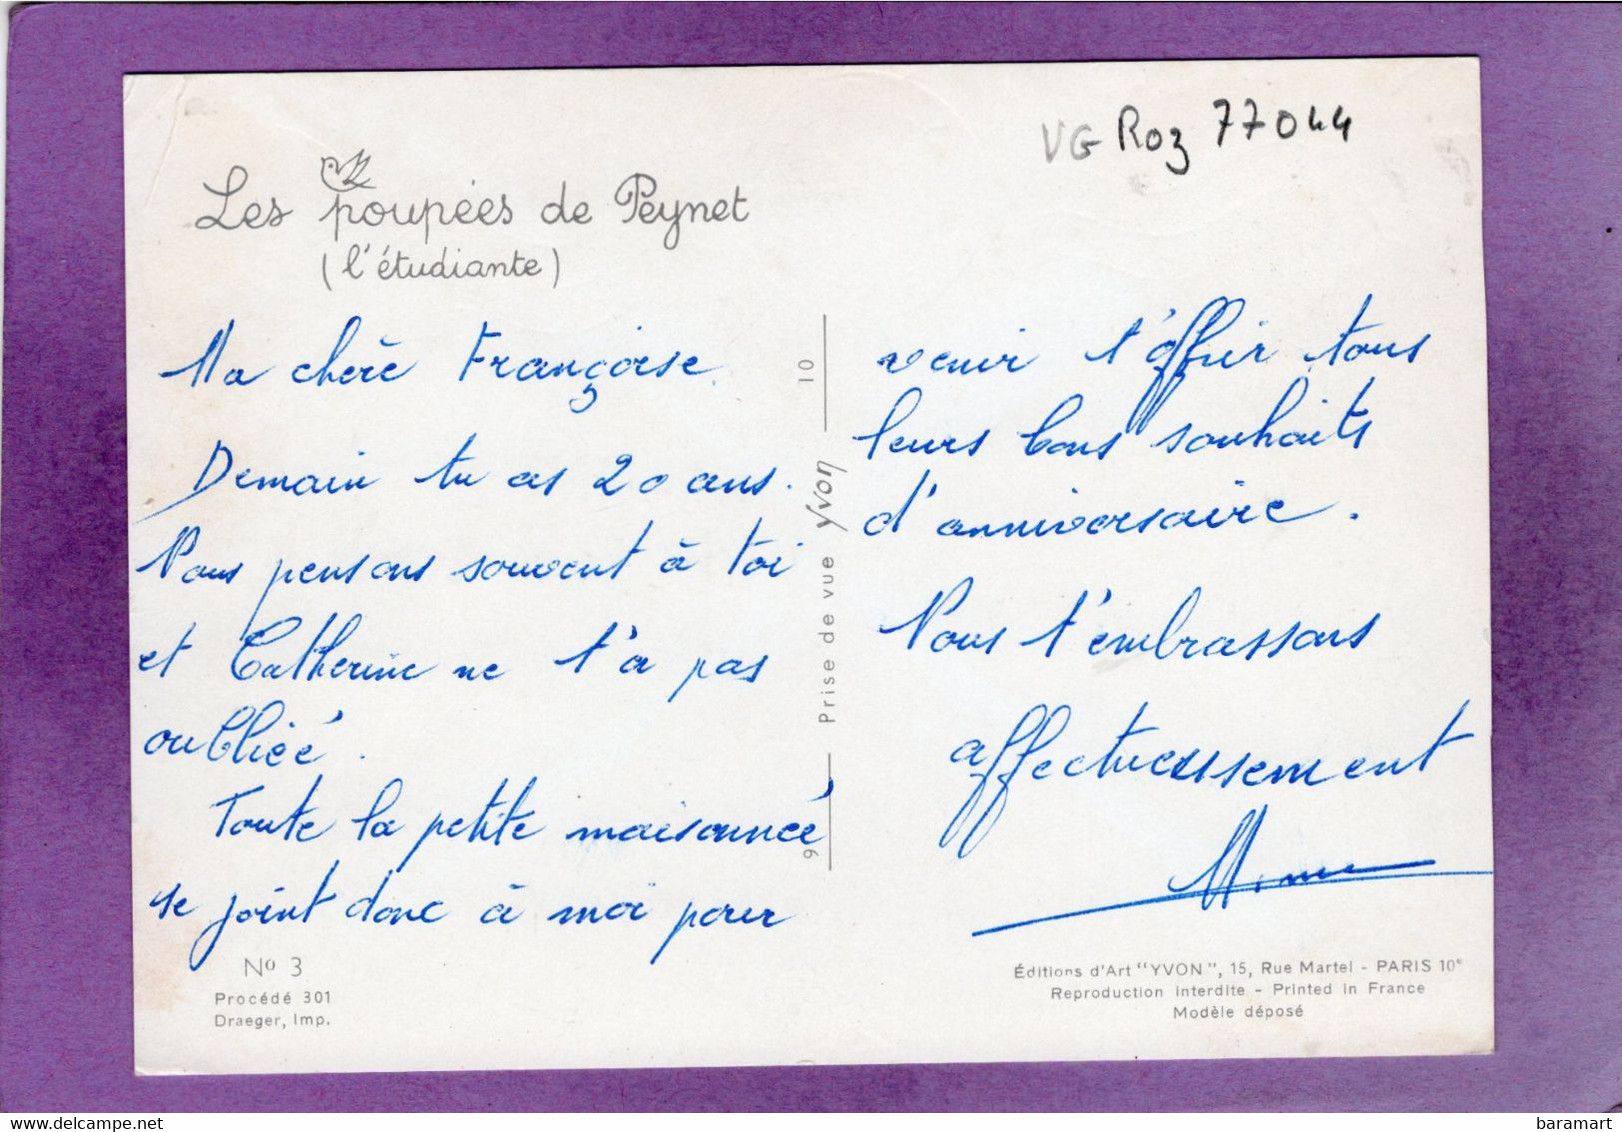 VG Roz 77044
Les poupées de Peynet
(l'étudiante)
Ma chère Françoise.
Demain tu as 20 ans.
Nous pensons souvent à toi
et Catherine ne t'a pas
oubliée.
Toute la petite maisonnée
se joint donc à moi pour
venir t'offrir tous
leurs bons souhaits
d'anniversaire.
Nous t'embrassons
affectueusement
10
Prise de vue Yvon
9
No 3
Procédé 301
Draeger, Imp.
Éditions d'Art "YVON", 15, Rue Martel - PARIS 10e
Reproduction Interdite - Printed in France
Modèle déposé
delcampe.net
baramart